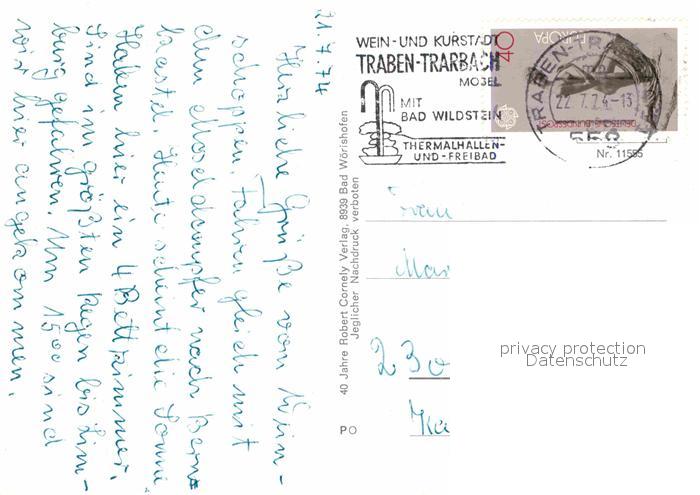 21.7.74
Herzliche Grüße vom Wein-
schoppen. Fahren gleich mit
dem Moseldampfer nach Bern-
kastel. Heute scheint die Sonne
Haben hier ein 4 Bettzimmer.
Sind im größten Regen bis Lim-
burg gefahren. Um 15oo sind
wir hier angekommen.
40 Jahre Robert Cornely Verlag, 8939 Bad Wörishofen
Jeglicher Nachdruck verboten
WEIN- UND KURSTADT
TRABEN-TRARBACH
MOSEL
MIT
BAD WILDSTEIN
THERMALHALLEN-
UND -FREIBAD
40
EUROPA
DEUTSCHE BUNDESPOST
TRABEN-TR
22.7.74-13
Nr. 11555
Frau
Mar
230
Ka
PO
privacy protection
Datenschutz